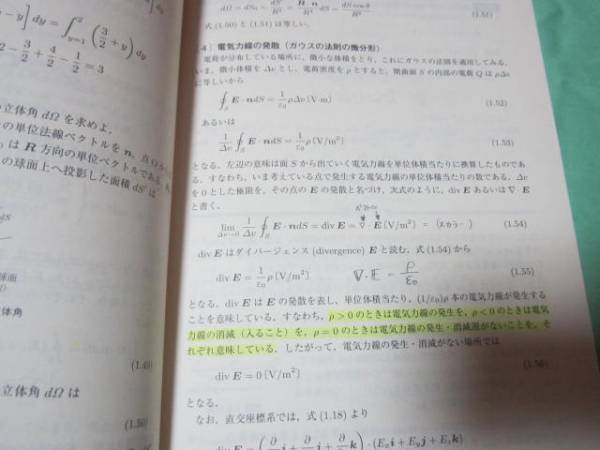 − y] = ∫²_{y=1} (3/2 + y) dy
− 3/2 + 4/2 − 1/2 = 3
立体角 dΩ を求めよ．
の単位法線ベクトルを n，点
は R 方向の単位ベクトルである．
の球面上へ投影した面積 dS′ は
(1.49)
立体角 dΩ は
(1.50)
(1.51)
式 (1.50) と (1.51) は等しい．
4 電気力線の発散（ガウスの法則の微分形）
電荷が分布している場所に，微小な体積をとり，これにガウスの法則を適用してみる．
いま，微小体積を Δv とし，電荷密度を ρ とすると，閉曲面 S の内部の電荷 Q は ρΔv
に等しいから
∮_S E · n dS = 1/ε₀ ρΔv (V·m) (1.52)
あるいは
1/Δv ∮_S E · n dS = 1/ε₀ ρ (V/m²) (1.53)
となる．左辺の意味は面 S から出ていく電気力線を単位体積当たりに換算したものであ
る．すなわち，いま考えている点で発生する電気力線の単位体積当たりの数である．Δv
を 0 とした極限を，その点の E の発散と名づけ，次式のように，div E あるいは ∇ · E
と書く．
lim_{Δv→0} 1/Δv ∮_S E · n dS = div E = ∇ · E (V/m²) = (スカラー) (1.54)
div E はダイバージェンス (divergence) E と読む．式 (1.54) から
div E = 1/ε₀ ρ (V/m²) ∇·E = ρ/ε₀ (1.55)
となる．div E は E の発散を表し，単位体積当たり，(1/ε₀)ρ 本の電気力線が発生する
ことを意味している．すなわち，ρ > 0 のときは電気力線の発生を，ρ < 0 のときは電気
力線の消滅（入ること）を，ρ = 0 のときは電気力線の発生・消滅源がないことを，そ
れぞれ意味している．したがって，電気力線の発生・消滅がない場所では
div E = 0 (V/m²) (1.56)
となる．
なお，直交座標系では，式 (1.18) より
div E = (∂/∂ i + ∂/∂ j + ∂/∂ k) · (Eₓi + E_yj + E_zk)